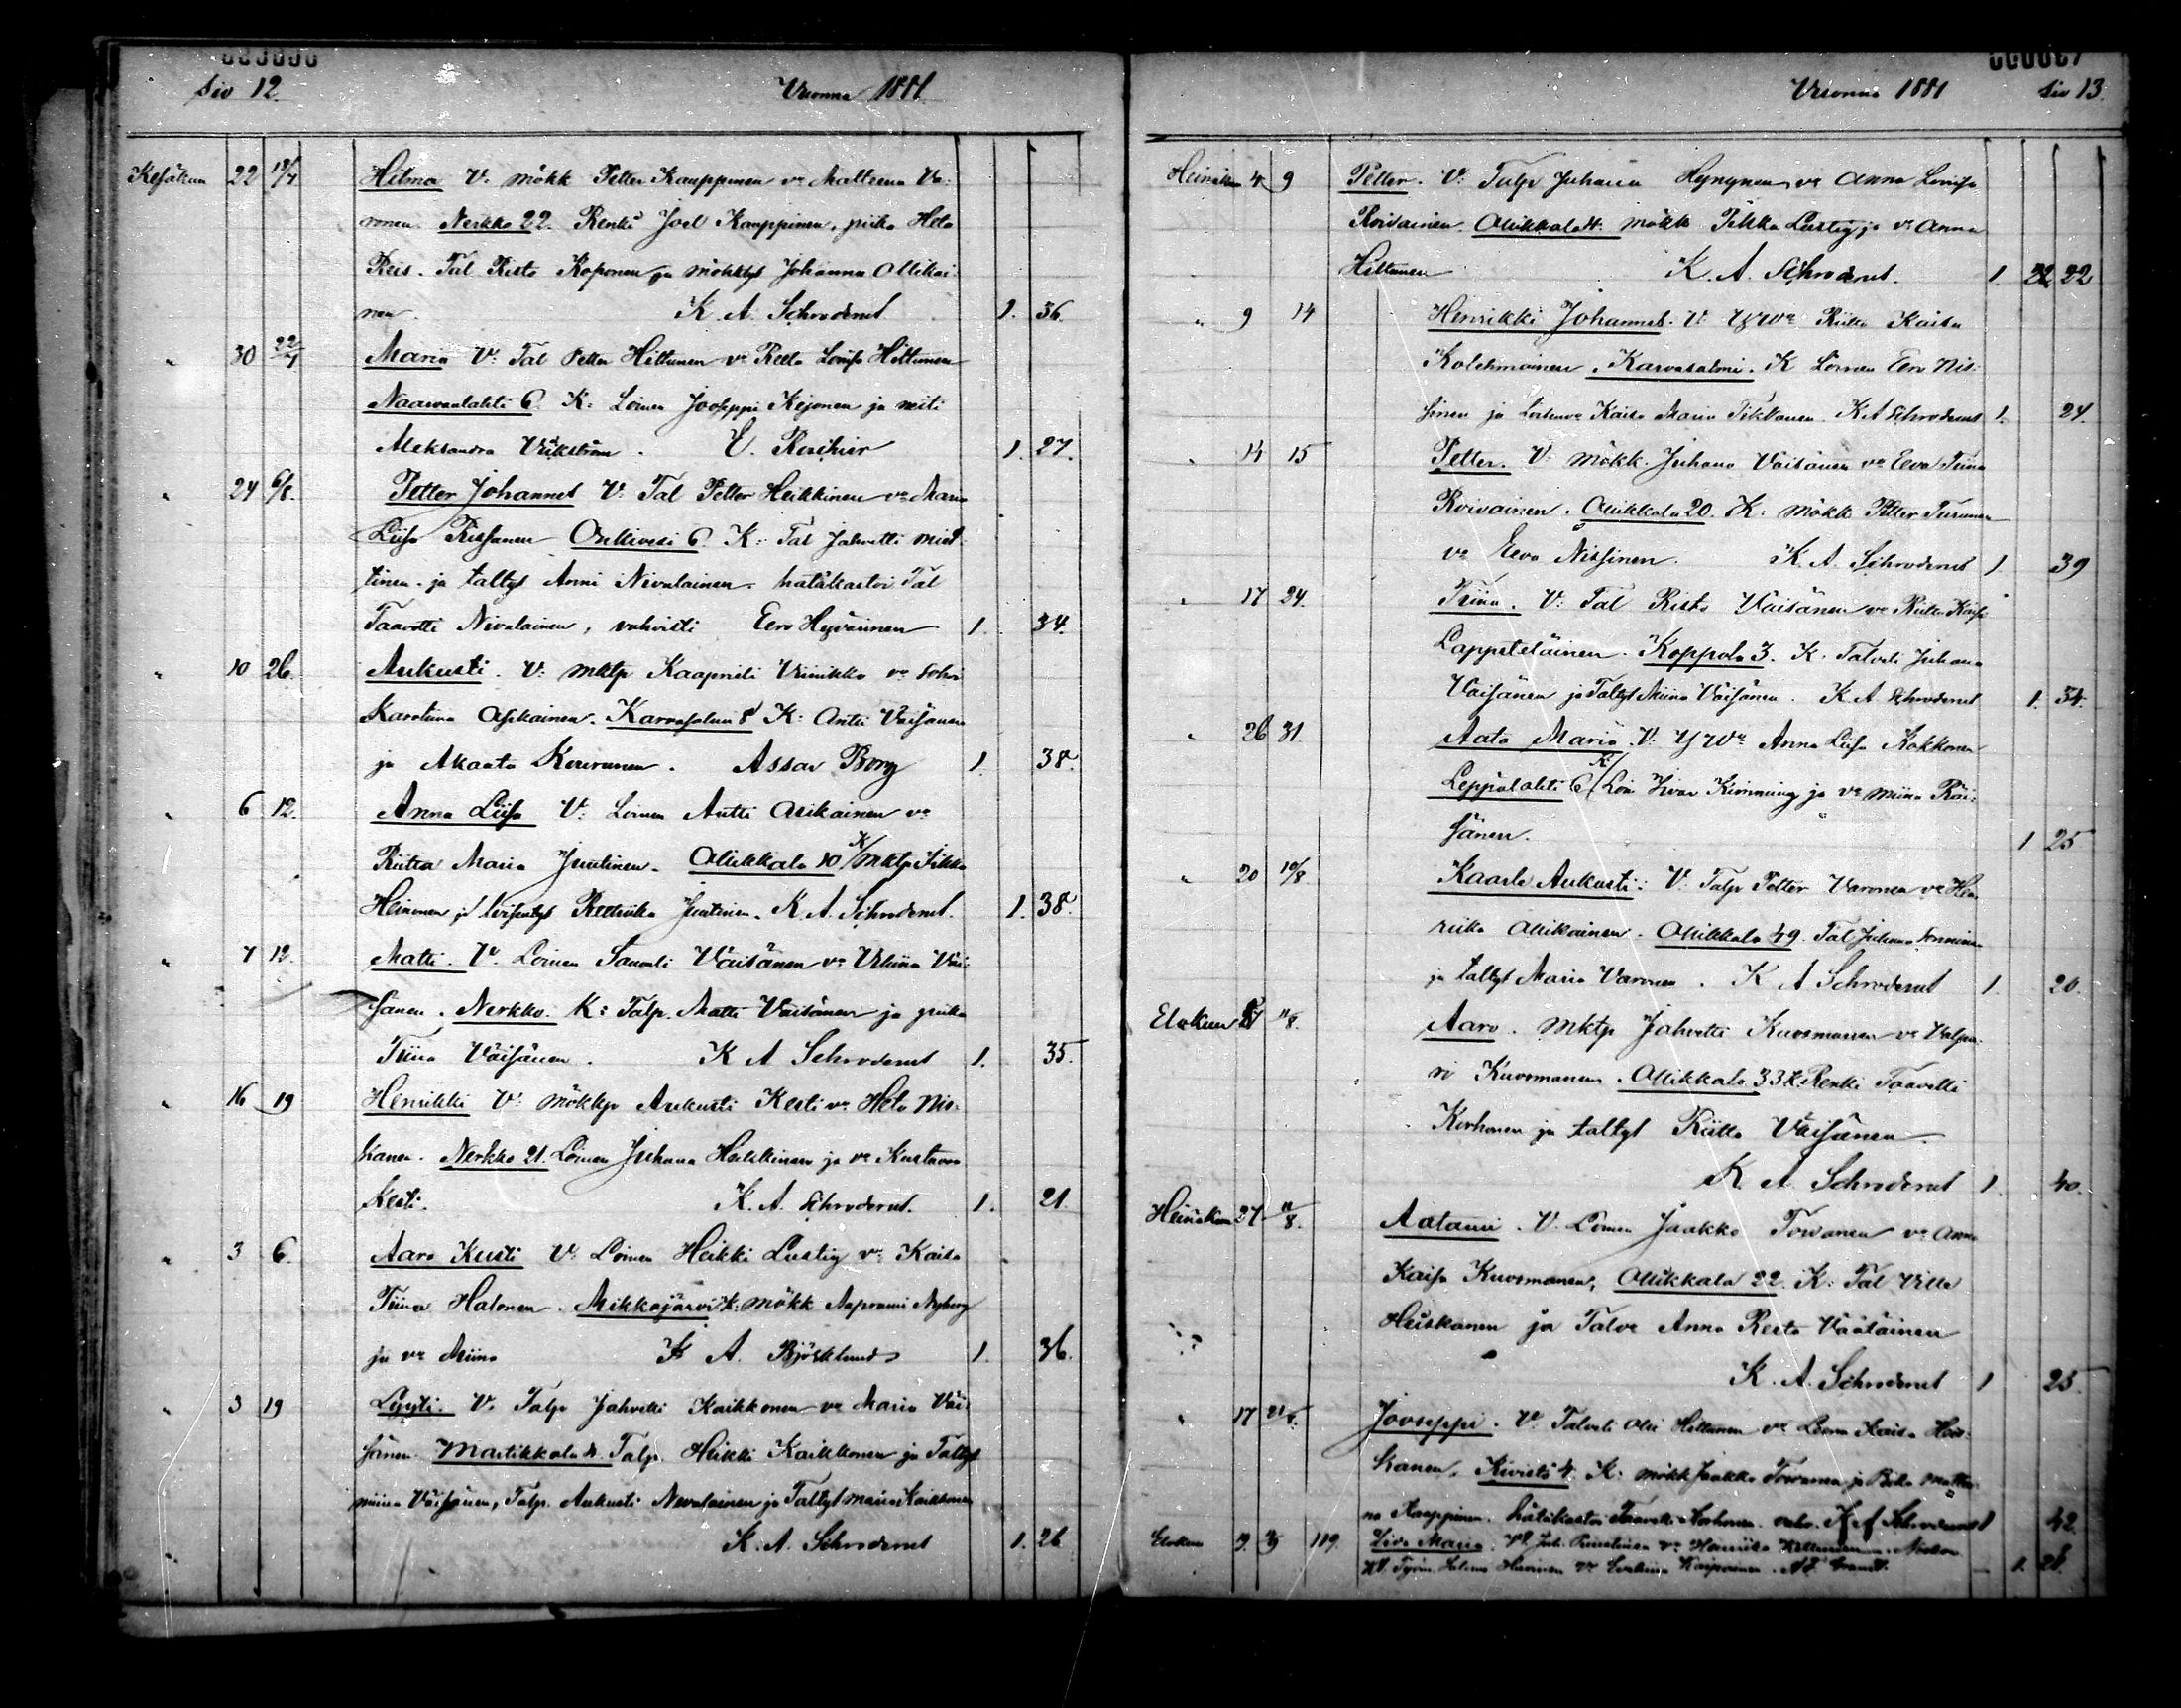 Siv 12. Vuonna 1881
Kesäkuu 22 18/7 Hilma V. mökk Petter Kauppinen vo Mattleena Va-
ronen. Nerkko 22. Renki Joel Kauppinen, piika Helo
Reis. Tal Risto Koponen ja mökktyt Johanna Ollikai-
nen. K. A. Schroderus 1. 36.
" 30 22/7 Maria V: Tal Petter Hiltunen vo Reeta Lovisa Hiltunen
Naarvanlahti 6. K: Loinen Jooseppi Kejonen ja neiti
Aleksandra Vikström. E. Roschier 1. 27.
" 24 6/8. Petter Johannes V: Tal Petter Heikkinen vo Maria
Liisa Rissanen Onkivesi 6. K: Tal Jahvetti Miet-
tinen ja taltyt Anni Nevalainen. hätäkastoi Tal
Taavetti Nevalainen, vahvisti Eero Hyvärinen 1. 34.
" 10 26. Aukusti. V: mktp Kaaprieli Vimikko vo Sohvi
Karoliina Asikainen. Karvasalmi 8 K: Antti Väisänen
ja Akaata Kourunen. Assar Borg 1. 38.
" 6 12. Anna Liisa V: Loinen Antti Asikainen vo
Riitta Maria Juutinen. Ollikkala 10 K/ mktp Pekka
Heinonen ja loistytt Reetriika Juutinen. K. A. Schroderus. 1. 38.
" 7 12. Matti. V. Loinen Samuli Väisänen vo Vilhiina Väi-
sänen. Nerkko. K: Talp. Matti Väisänen ja piika
Tiina Väisänen. K A Schroderus 1. 35.
" 16 19 Henrikki V: mökkp Aukusti Kesti vo Helo Nis-
kanen. Nerkko 21. Loinen Juhana Heikkinen ja vo Kustaava
Kesti. K. A. Schroderus. 1. 21.
" 3 6. Aaro Kusti V: Loinen Heikki Lustig vo Kaisa
Tiina Halonen. Mikkajärvi K: mökk Aaprami Nyberg
ja vo Miina K A. Björklund 1. 36.
" 3 19 Lyyti. V. Talp Jahvetti Kaikkonen vo Maria Väi-
sänen Martikkala 4. Talp. Heikki Kaikkonen ja Taltyt
Miina Väisänen, Talp. Aukusti Nevalainen ja Taltyt Maria Kaikkonen
K. A. Schroderus 1. 26
Vuonna 1881 Siv 13.
Heinäkuu 4 9 Petter. V: Talp Juhana Hynynen vo Anna Lovisa
Roivainen. Ollikkala 4: mökk Pekka Lustig ja vo Anna
Hiltunen K. A. Schroderus. 1. 22 22
" 9 14 Henrikki Johannes. V: Yx Wa Riitta Kaisa
Kolehmainen. Karvasalmi. K Loinen Eero Nis-
sinen ja loisenvo Kaisa Maria Pekkanen. K A Schroderus 1. 24.
" 14 15 Petter. V: mökk. Juhana Väisänen vo Eeva Tiina
Roivainen. Ollikkala 20. K: mökk Petter Turunen
vo Eeva Nissinen. K. A. Schroderus 1 39
" 17 24. Tiina. V: Tal Risto Väisänen vo Riitta Kaisa
Lappeteläinen. Koppola 3. K. Talveli Juhana
Väisänen ja Taltyt Miina Väisänen. K. A Schroderus 1. 34.
" 26 31. Aata Maria. V: Yx Wa Anna Liisa Kokkonen
Leppälahti 6 K/ Loin Iivar Kimming ja vo Miina Räi-
sänen. 1 25
" 20 10/8 Kaarle Aukusti: V: Talp Petter Varonen vo Hen-
riika Ollikainen. Ollikkala 49. Tal Juhana Sonninen
ja taltyt Maria Varonen. K A Schroderus 1. 20.
Elokuu 11/8. Aaro. mktp Jahvetti Kuosmanen vo Valpu-
ri Kuosmanen. Ollikkala 33 K. Renki Taavetti
Korhonen ja taltyt Riitta Väisänen.
K. A Schroderus 1 40.
Heinäkuu 27 11/8. Aatami. V. Loinen Jaakko Toivanen vo Anna
Kaisa Kuosmanen, Ollikkala 22. K: Tal Ville
Heiskanen ja Talvo Anna Reeta Väätäinen
K. A. Schroderus 1 25.
" 17 21/8. Jooseppi. V. Talveli Olli Hiltunen vo Leena Kaisa Heis-
kanen. Kivistö 4. K: mökk Jaakko Toivanen ja Piika Matlee-
na Kauppinen. hätäkastoi Taavetti Korhonen. vahv. K A Schroderus 1 42.
Elokuu 9. 119. Liisa Maria. Juh. Ruuskinen vo Henriika Hiltunen. Nerkko
K. Työm. Heivonen vo Eveliina Kaipainen. A. F. Granit. 1. 28.